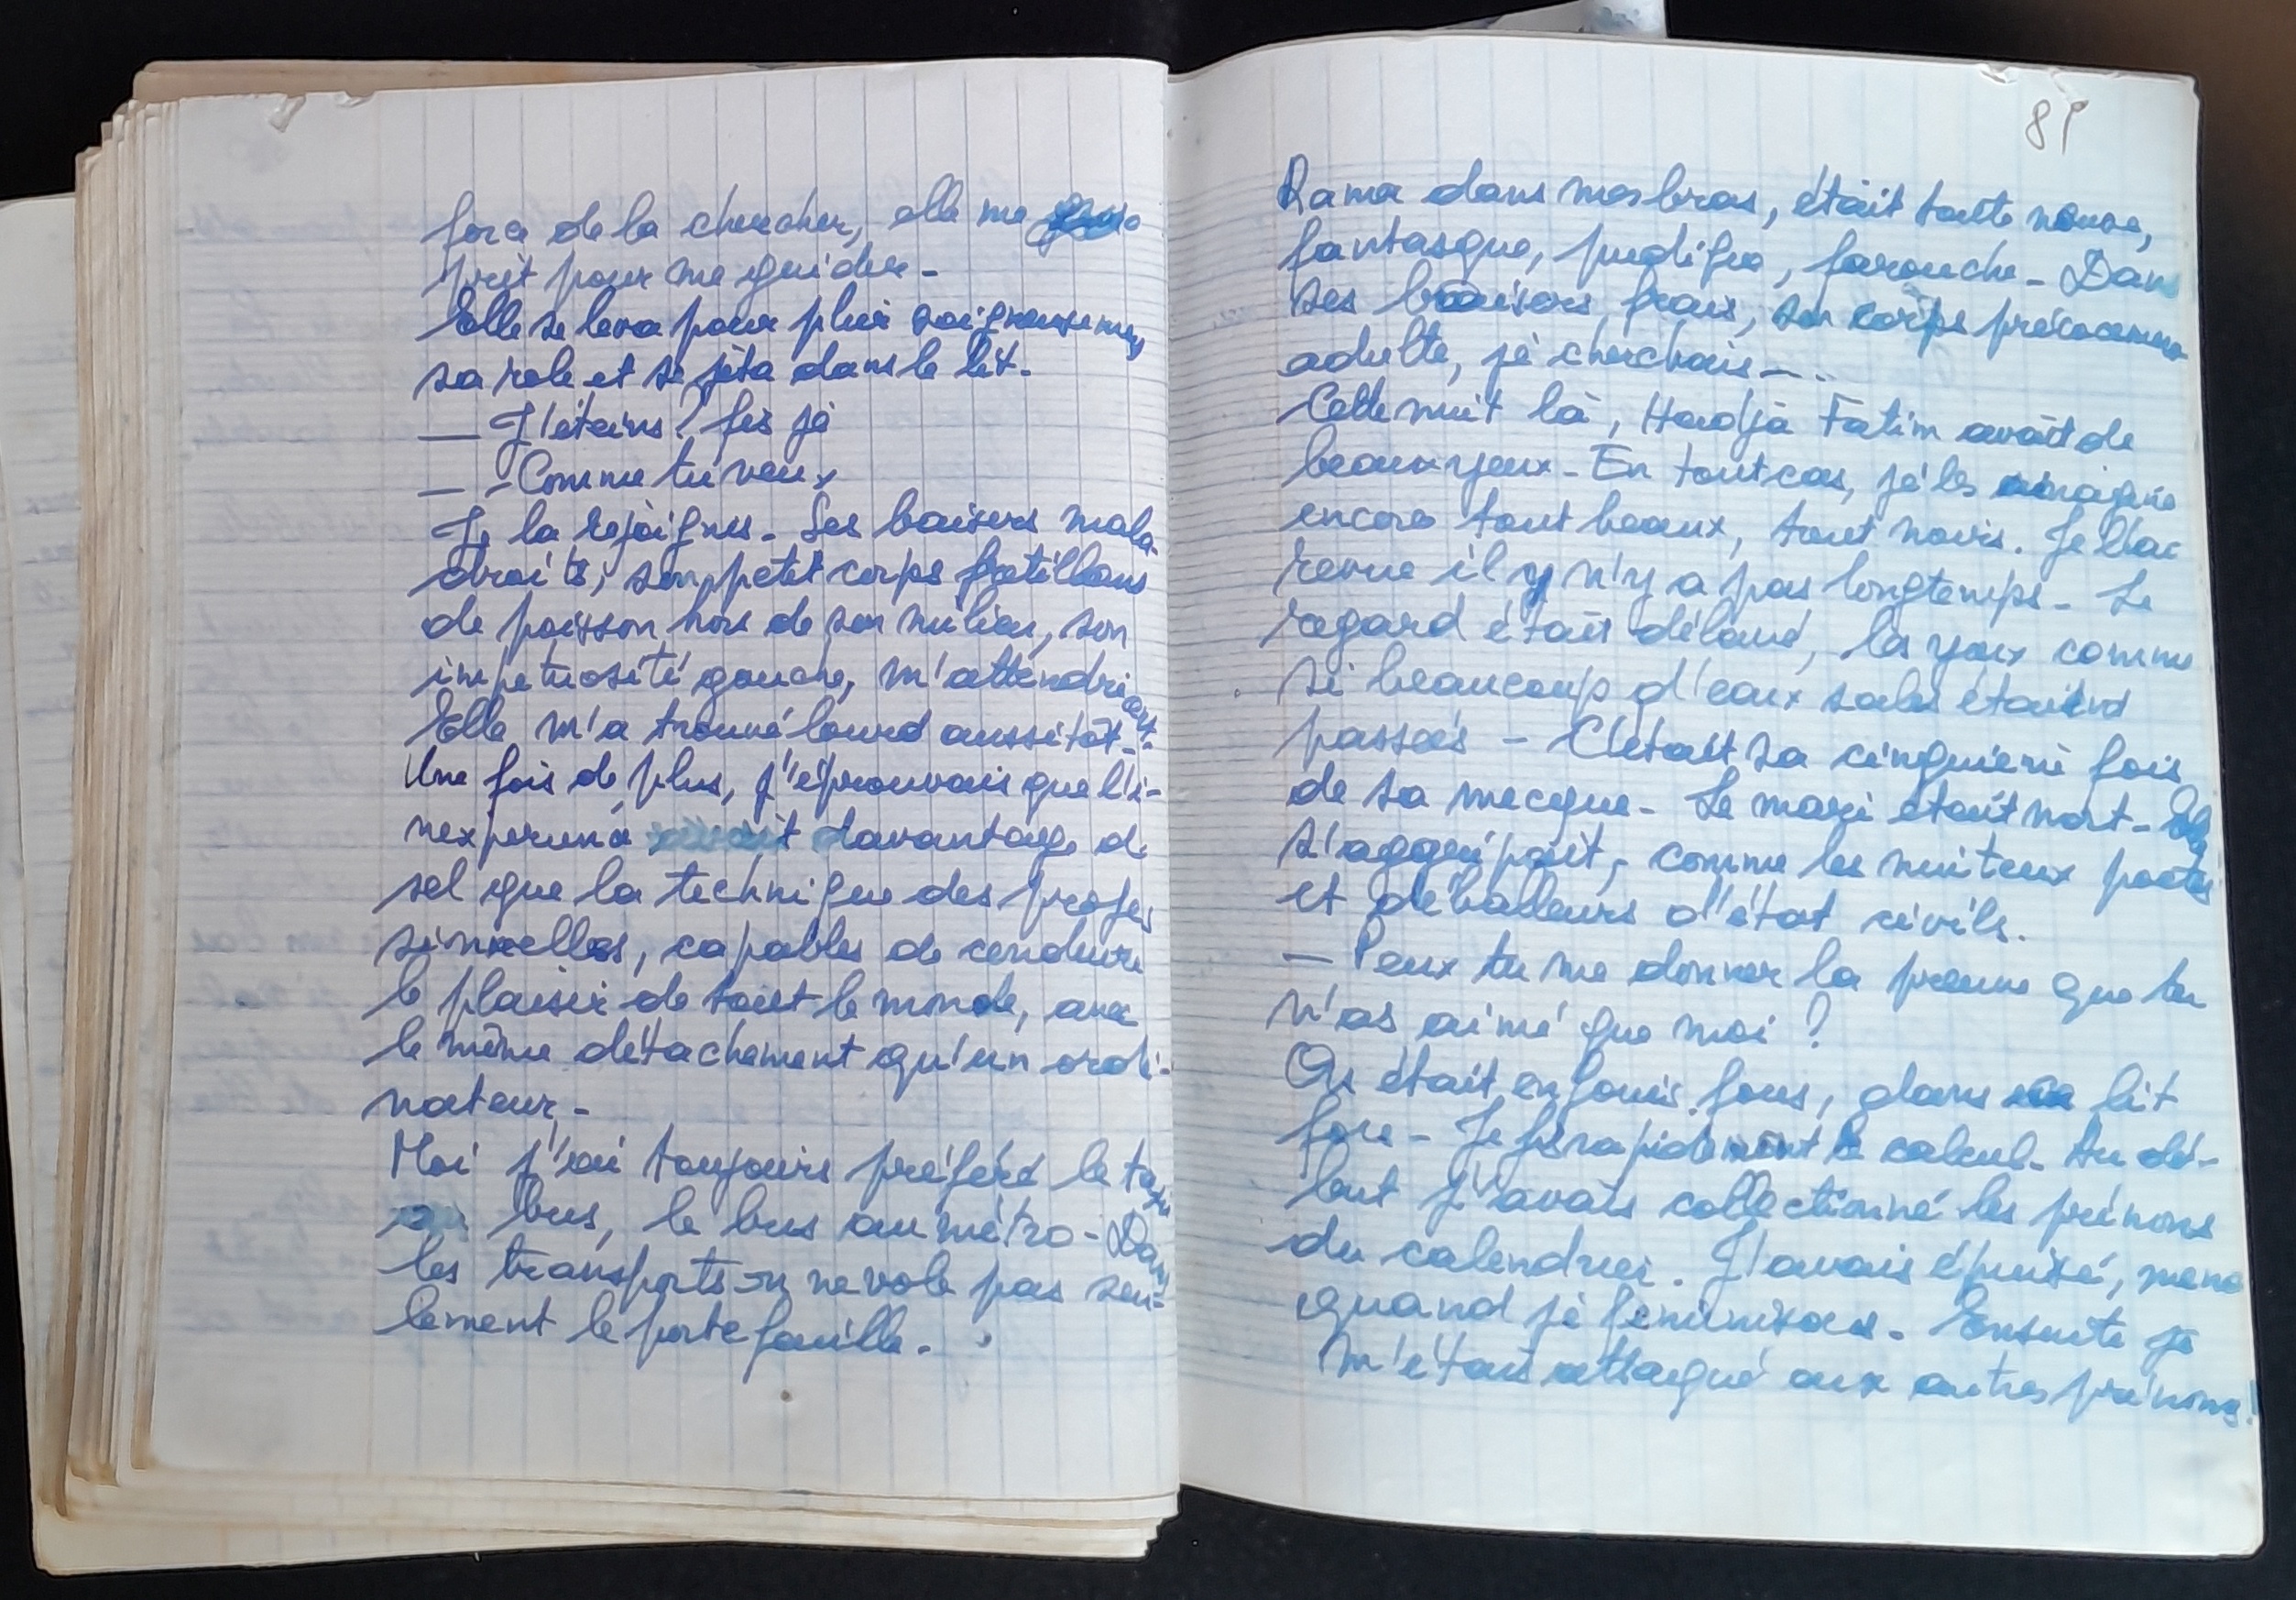 force de la chercher, elle me
prit pour me guider -
Elle se leva pour plier soigneusemen
sa robe et se jeta dans le lit.
— J'éteins ? fis je
— Comme tu veux
Je la rejoignis - Ses baisers mala-
droits, son petit corps frétillant
de poisson hors de son milieu, son
impétuosité gauche, m'attendrirent
Elle m'a trouvé lourd aussitôt -
Une fois de plus, j'éprouvais que l'i-
nexpérience davantage de
sel que la technique des profes
sionnelles, capables de conduire
le plaisir de tout le monde, avec
le même détachement qu'un ordi-
nateur -
Moi j'ai toujours préféré le taxi
au bus, le bus au métro - Dans
les transports on ne vole pas seu-
lement le portefeuille.
89
Rama dans mes bras, était toute neuve,
fantasque, prodigue, farouche - Dans
ses baisers frais, son corps précocement
adulte, je cherchais - ..
Cette nuit là, Hadja Fatim avait de
beaux yeux - En tout cas, je les imagine
encore tout beaux, tout noirs. Je l'ai
revue il y n'y a pas longtemps - Le
regard était délavé, les yeux comme
si beaucoup d'eaux sales étaient
passées - C'était sa cinquième fois
de sa mecque - Le mari était mort - Elle
s'aggripait, comme les
et déballeurs d'état civils.
— Peux tu me donner la preuve que tu
n'as aimé que moi ?
On était enfouis, fous, dans lit
fou - Je fis rapidement le calcul - Au dé-
but j'avais collectionné les prénoms
du calendrier. J'avais épuisé, meme
quand je feminisais - Ensuite je
m'étais attaqué aux autres prénoms!